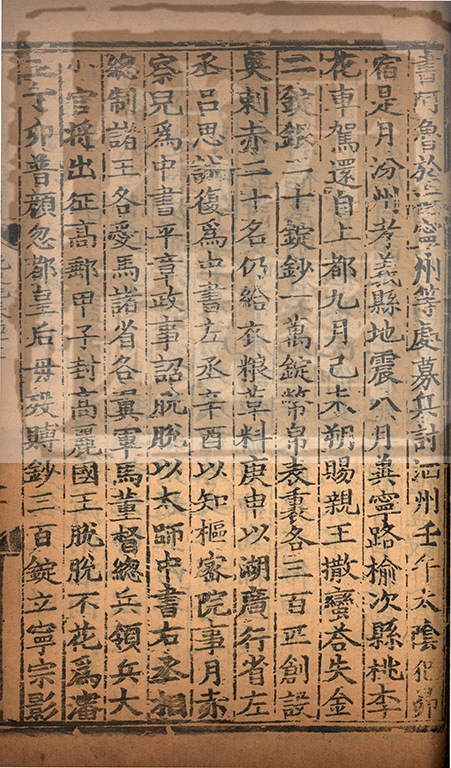 書阿魯於濟寧州等處募兵討泗州壬午太陰犯昴
宿是月汾州孝義縣地震八月冀寧路榆次縣桃李
花車駕還自上都九月己未朔賜親王撒蠻荅失金
二錠銀二十錠鈔一萬錠幣帛表裏各三百匹創設
奧剌赤二十名仍給衣粮草料庚申以湖廣行省左
丞呂思誠復爲中書左丞辛酉以知樞密院事月赤
察兒爲中書平章政事詔脱脱以太師中書右丞相
總制諸王各愛馬諸省各翼軍馬董督總兵領兵大
小官将出征高郵甲子封高麗國王脱脱不花爲瀋
王丁卯普顔忽都皇后母歿賻鈔三百錠立寧宗影